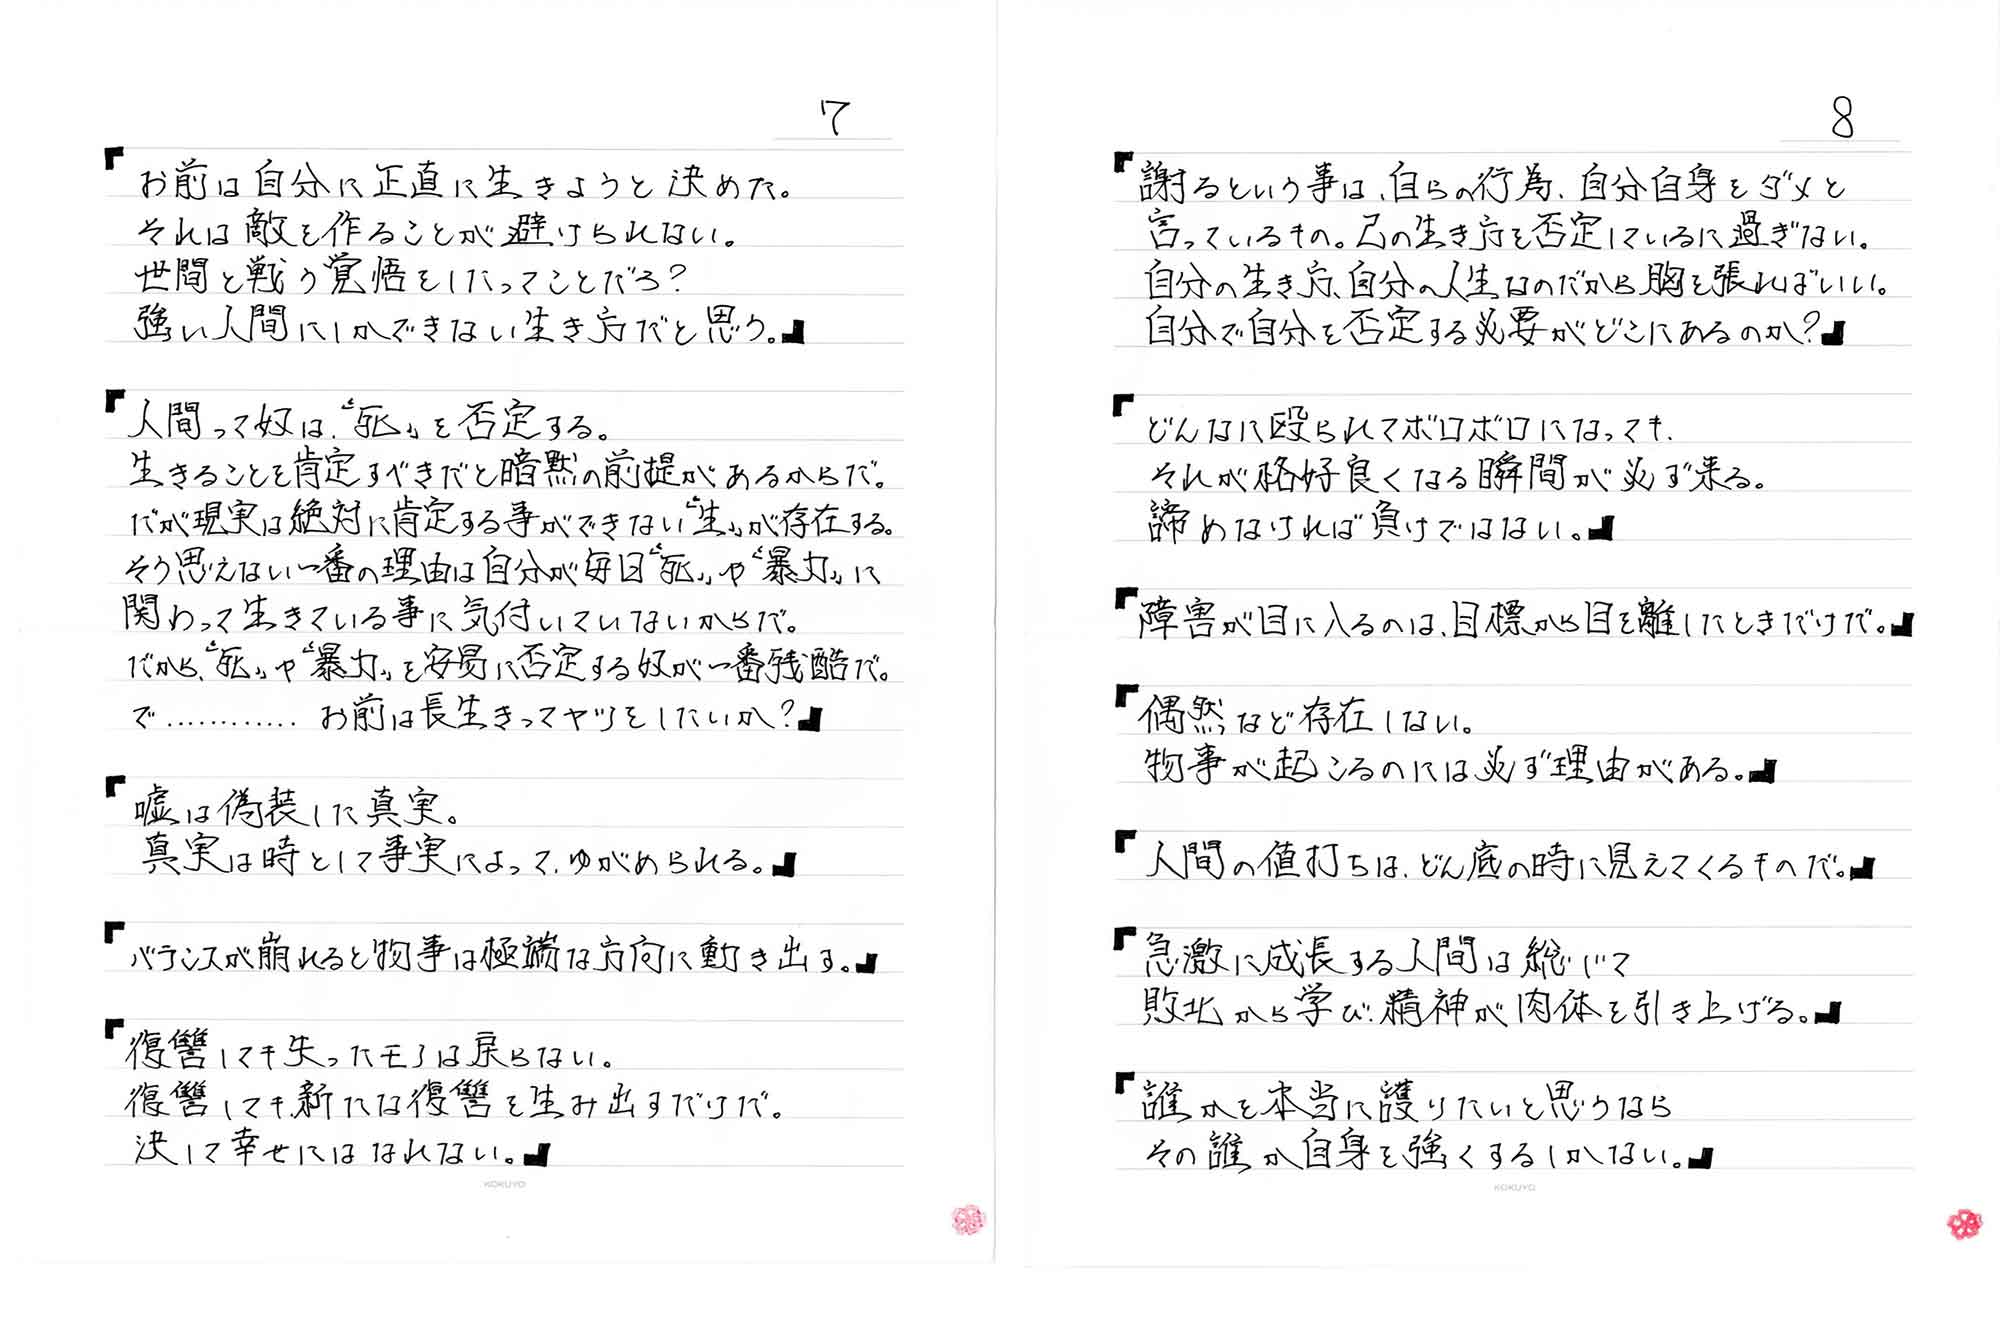 7
『お前は自分に正直に生きようと決めた。
それは敵を作ることが避けられない。
世間と戦う覚悟をしたってことだろ?
強い人間にしかできない生き方だと思う。』
『人間って奴は、“死„を否定する。
生きることを肯定すべきだと暗黙の前提があるからだ。
だが現実は絶対に肯定する事ができない“生„が存在する。
そう思えない一番の理由は自分が毎日“死„や“暴力„に
関わって生きている事に気付いていないからだ。
だから、“死„や“暴力„を安易に否定する奴が一番残酷だ。
で………… お前は長生きってヤツをしたいか?』
『嘘は偽装した真実。
真実は時として事実によって、ゆがめられる。』
『バランスが崩れると物事は極端な方向に動き出す。』
『復讐しても失ったモノは戻らない。
復讐しても、新たな復讐を生み出すだけだ。
決して幸せにはなれない。』
KOKUYO
8
『謝るという事は、自らの行為、自分自身をダメと
言っているもの。己の生き方を否定しているに過ぎない。
自分の生き方、自分の人生なのだから胸を張ればいい。
自分で自分を否定する必要がどこにあるのか?』
『どんなに殴られてボロボロになっても、
それが格好良くなる瞬間が必ず来る。
諦めなければ負けではない。』
『障害が目に入るのは、目標から目を離したときだけだ。』
『偶然など存在しない。
物事が起こるのには必ず理由がある。』
『人間の値打ちは、どん底の時に見えてくるものだ。』
『急激に成長する人間は総じて
敗北から学び、精神が肉体を引き上げる。』
『誰かを本当に護りたいと思うなら
その誰か自身を強くするしかない。』
KOKUYO